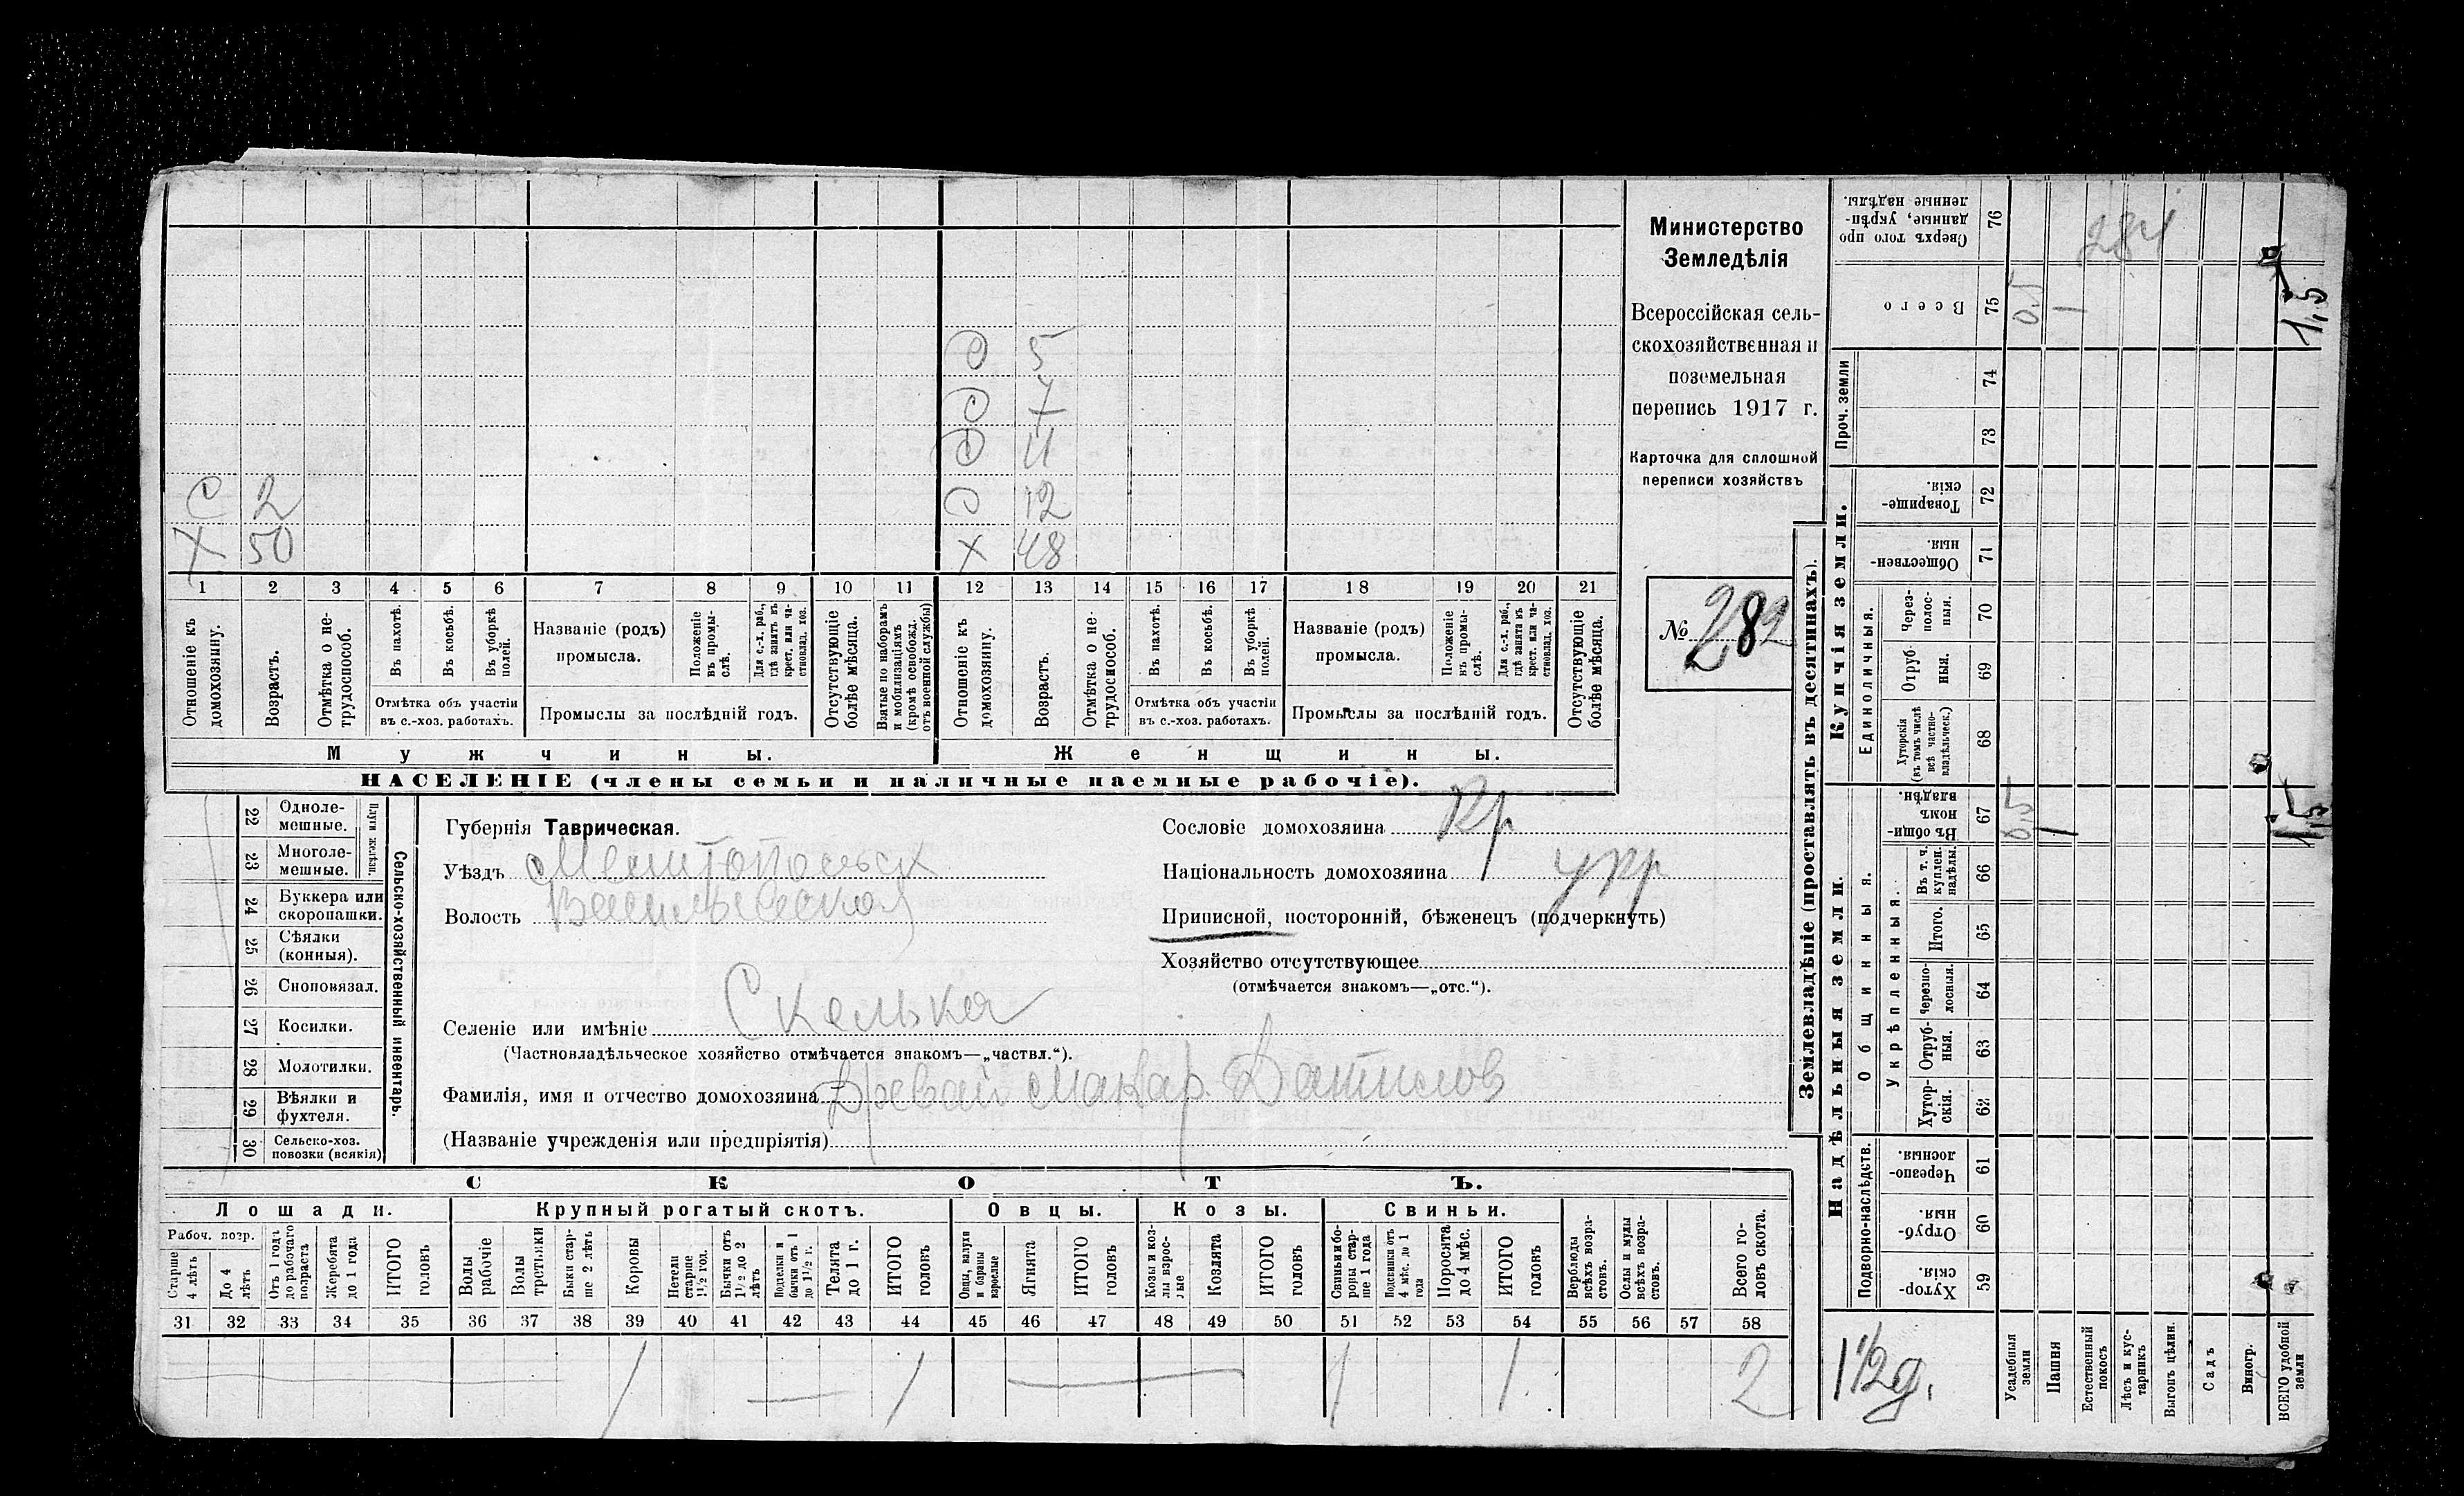 Министерство
Земледѣлія
Всероссійская сель-
скохозяйственная и
поземельная
перепись 1917 г.
Карточка для сплошной
переписи хозяйствъ
№ 282
О 5
О 7
О 11
С 2 О 12
Х 50 Х 48
1 2 3 4 5 6 7 8 9 10 11 12 13 14 15 16 17 18 19 20 21
Отношеніе къ домохозяину.
Возрастъ.
Отмѣтка о не-трудоспособ.
Въ пахотѣ.
Въ косьбѣ.
Въ уборкѣ полей.
Названіе (родъ) промысла.
Положеніе въ промы-слѣ.
Для с.-х. раб., гдѣ занятъ въ крест. или ча-стновлад. хоз.
Отмѣтка объ участіи въ с.-хоз. работахъ.
Промыслы за послѣдній годъ.
Отсутствующіе болѣе мѣсяца.
Взятые по наборамъ и мобилизаціямъ (кромѣ освобожд. отъ военной службы)
Отношеніе къ домохозяину.
Возрастъ.
Отмѣтка о не-трудоспособ.
Въ пахотѣ.
Въ косьбѣ.
Въ уборкѣ полей.
Названіе (родъ) промысла.
Положеніе въ промы-слѣ.
Для с.-х. раб., гдѣ занята въ крест. или ча-стновлад. хоз.
Отмѣтка объ участіи въ с.-хоз. работахъ.
Промыслы за послѣдній годъ.
Отсутствующіе болѣе мѣсяца.
Мужчины. Женщины.
НАСЕЛЕНІЕ (члены семьи и наличные наемные рабочіе).
Сельско-хозяйственный инвентарь.
Плуги желѣзн.
22 Одноле-мешные.
23 Многоле-мешные.
24 Буккера или скоропашки.
25 Сѣялки (конныя).
26 Сноповязал.
27 Косилки.
28 Молотилки.
29 Вѣялки и фухтеля.
30 Сельско-хоз. повозки (всякія)
Губернія Таврическая.
Уѣздъ Мелитопольск
Волость Васильевская
Селеніе или имѣніе Скелька
(Частновладѣльческое хозяйство отмѣчается знакомъ—„частвл.“).
Фамилія, имя и отчество домохозяина Макар Данилов
(Названіе учрежденія или предпріятія)
Сословіе домохозяина Кр
Національность домохозяина укр
Приписной, посторонній, бѣженецъ (подчеркнуть)
Хозяйство отсутствующее
(отмѣчается знакомъ—„отс.“).
СКОТЪ.
Лошади. Крупный рогатый скотъ. Овцы. Козы. Свиньи.
Рабоч. возр.
Старше 4 лѣтъ
До 4 лѣтъ
Отъ 1 года до рабочаго возраста
Жеребята до 1 года
ИТОГО головъ
Волы рабочіе
Волы третьяки
Быки стар-ше 2 лѣтъ
Коровы
Нетели старше 1½ год.
Бычки отъ 1½ до 2 лѣтъ
Подтелки и бычки отъ 1 до 1½ г.
Телята до 1 г.
ИТОГО головъ
Овцы, валухи и бараны взрослые
Ягнята
ИТОГО головъ
Козы и коз-лы взрос-лые
Козлята
ИТОГО головъ
Свиньи и бо-ровы стар-ше 1 года
Подсвинки отъ 4 мѣс. до 1 года
Поросята до 4 мѣс.
ИТОГО головъ
Верблюды всѣхъ возра-стовъ.
Ослы и мулы всѣхъ возра-стовъ.
Всего го-ловъ скота.
31 32 33 34 35 36 37 38 39 40 41 42 43 44 45 46 47 48 49 50 51 52 53 54 55 56 57 58
1 1 1 1 2
Землевладѣніе (проставлять въ десятинахъ).
Купчія земли.
Надѣльныя земли.
Проч. земли
Единоличныя.
Общинныя.
Укрѣпленныя.
Подворно-наслѣдств.
Сверхъ того про данные, укрѣп-ленные надѣлы. 76 284
Всего 75 0.5 1 1,5
74
73
Товарище-скія. 72
Обществен-ныя. 71
Через-полос-ныя. 70
Отруб-ныя. 69
Хуторскія (въ томъ числѣ всѣ частно-владѣльческ.) 68
Въ общи-номъ владѣн. 67 0,5 1 1,5
Въ т. ч. куплен. надѣлы. 66
Итого. 65
Черезпо-лосныя. 64
Отруб-ныя. 63
Хутор-скія. 62
Черезпо-лосныя. 61
Отруб-ныя. 60
Хутор-скія. 59
1½ д.
Усадебныя земли
Пашня
Естественный покосъ
Лѣсъ и кус-тарникъ
Выгонъ цѣлин.
Садъ
Виногр.
ВСЕГО удобной земли